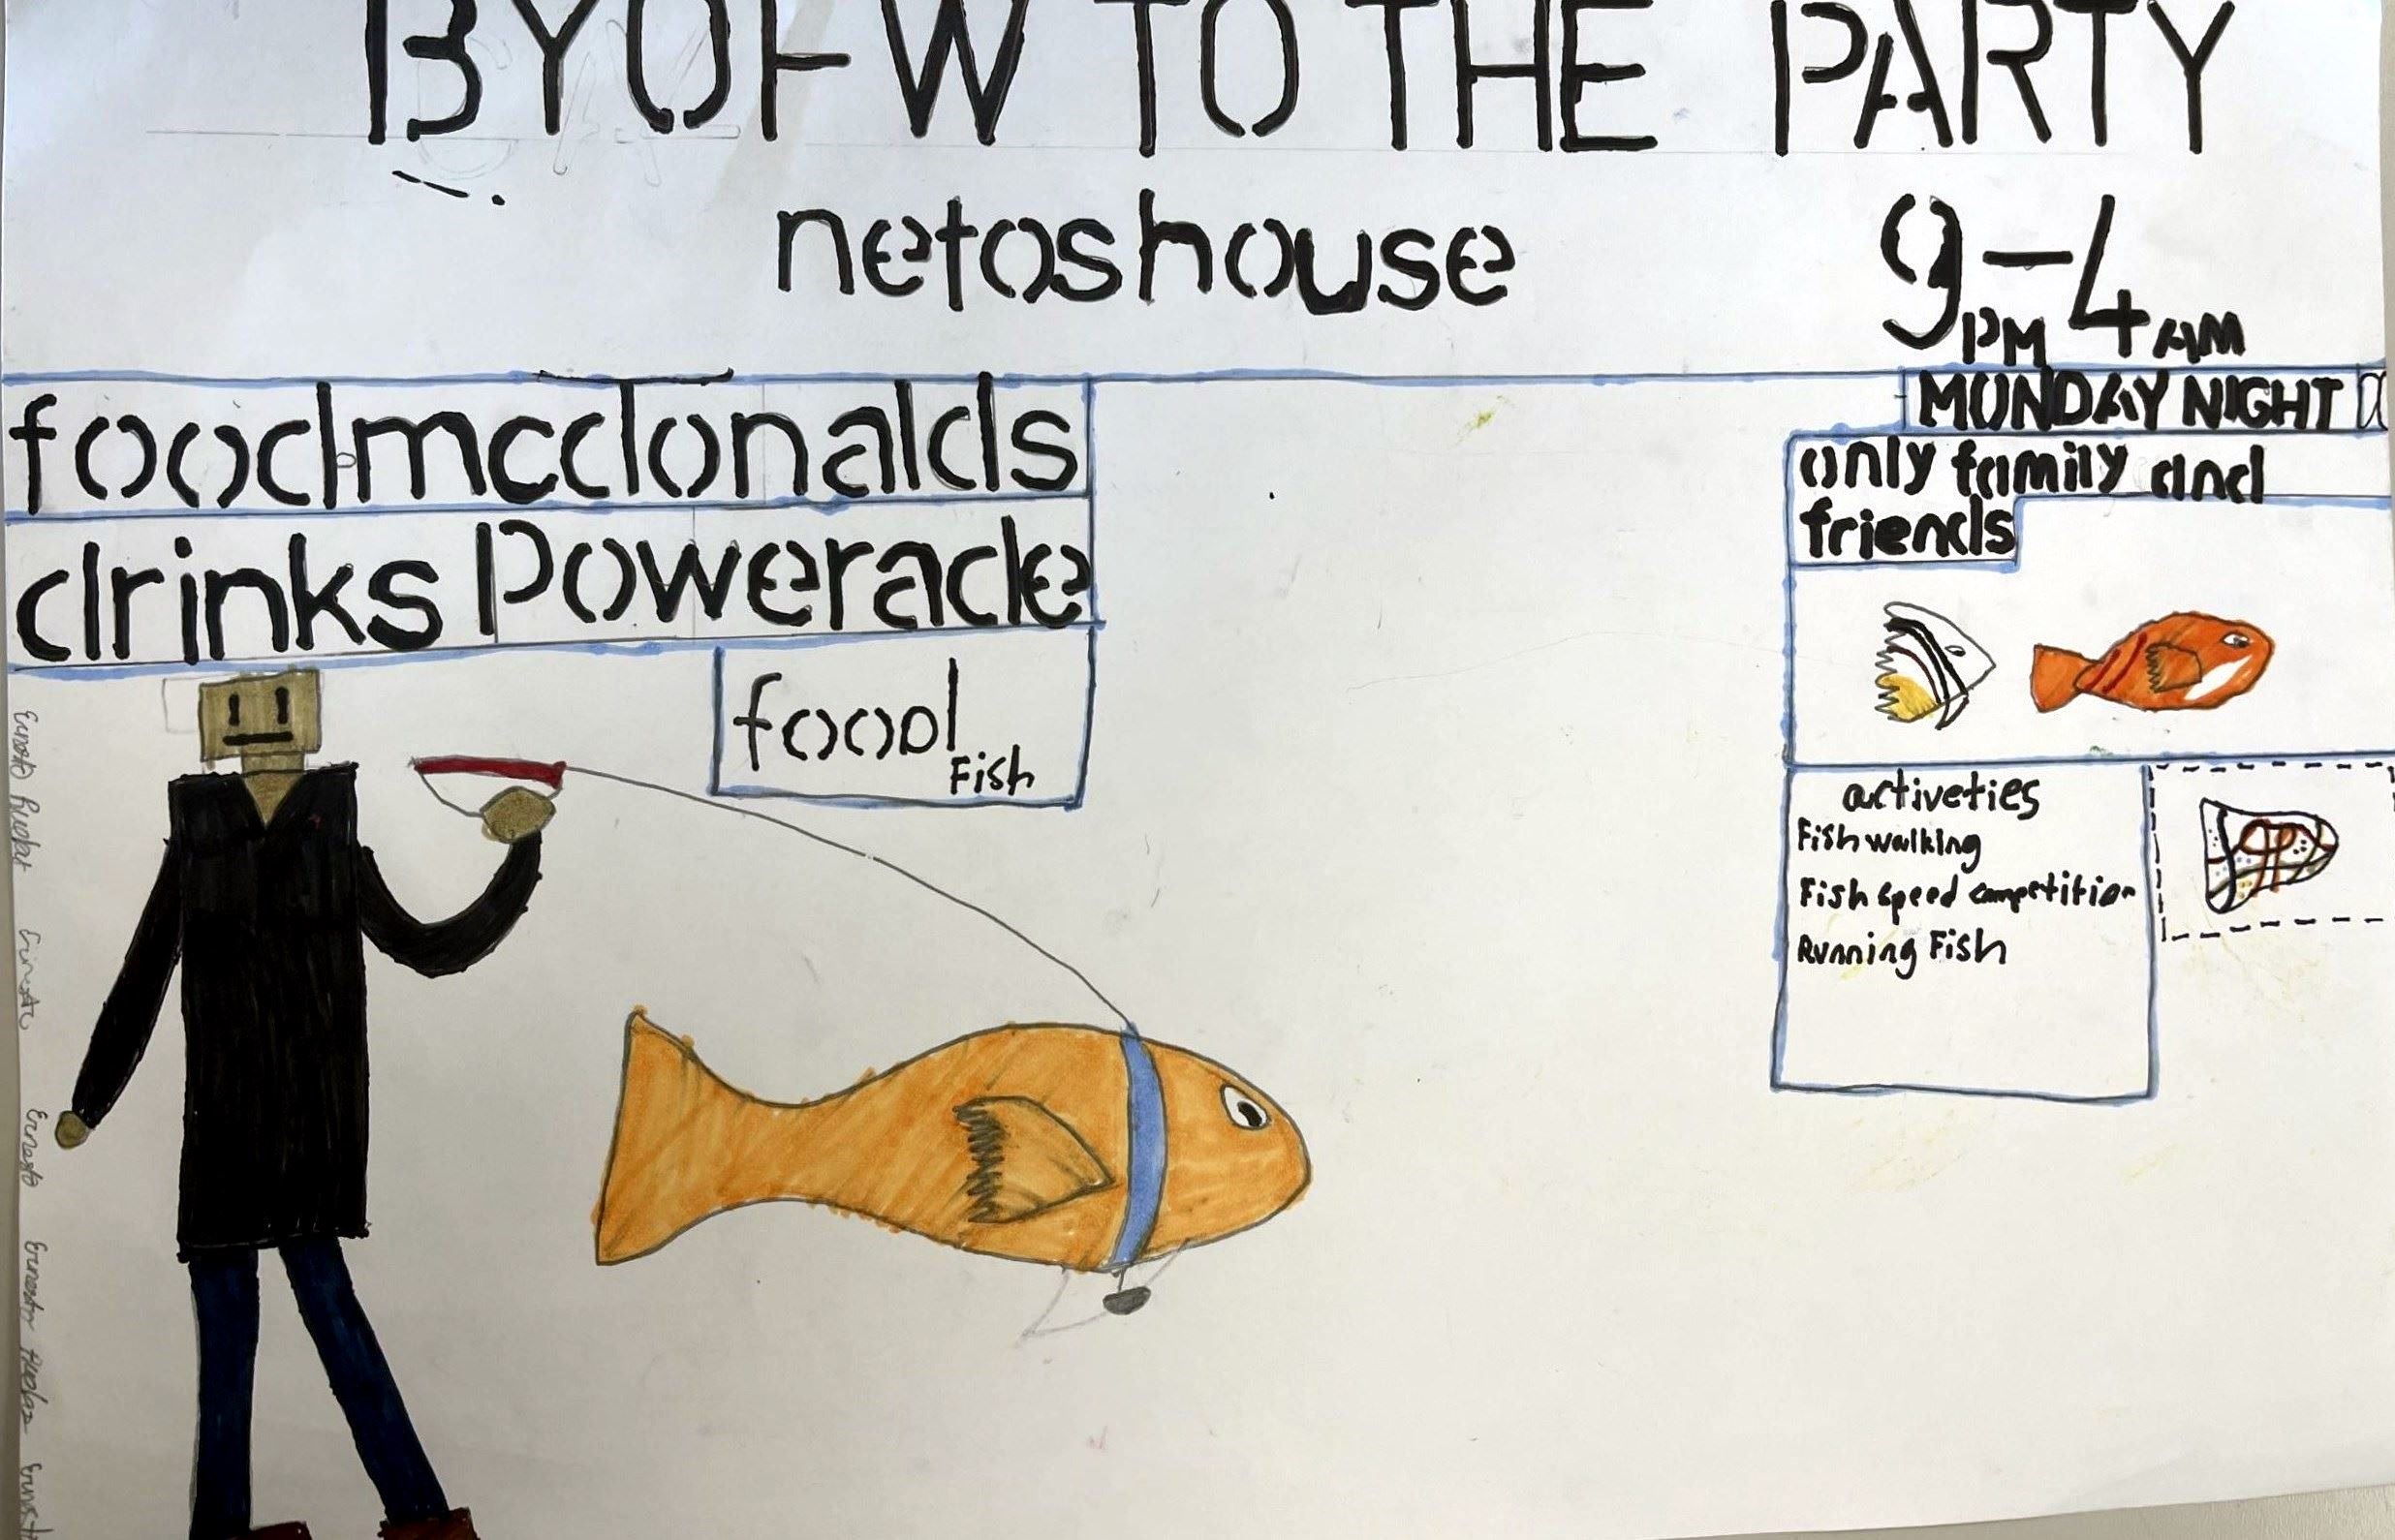 BYOFW TO THE PARTY
netoshouse
9PM-4AM
MUNDAY NIGHT
foodmcdonalds
only family and
friends
drinks Powerade
food
Fish
activeties
Fish walking
Fish speed competition
Running Fish
Ernesto